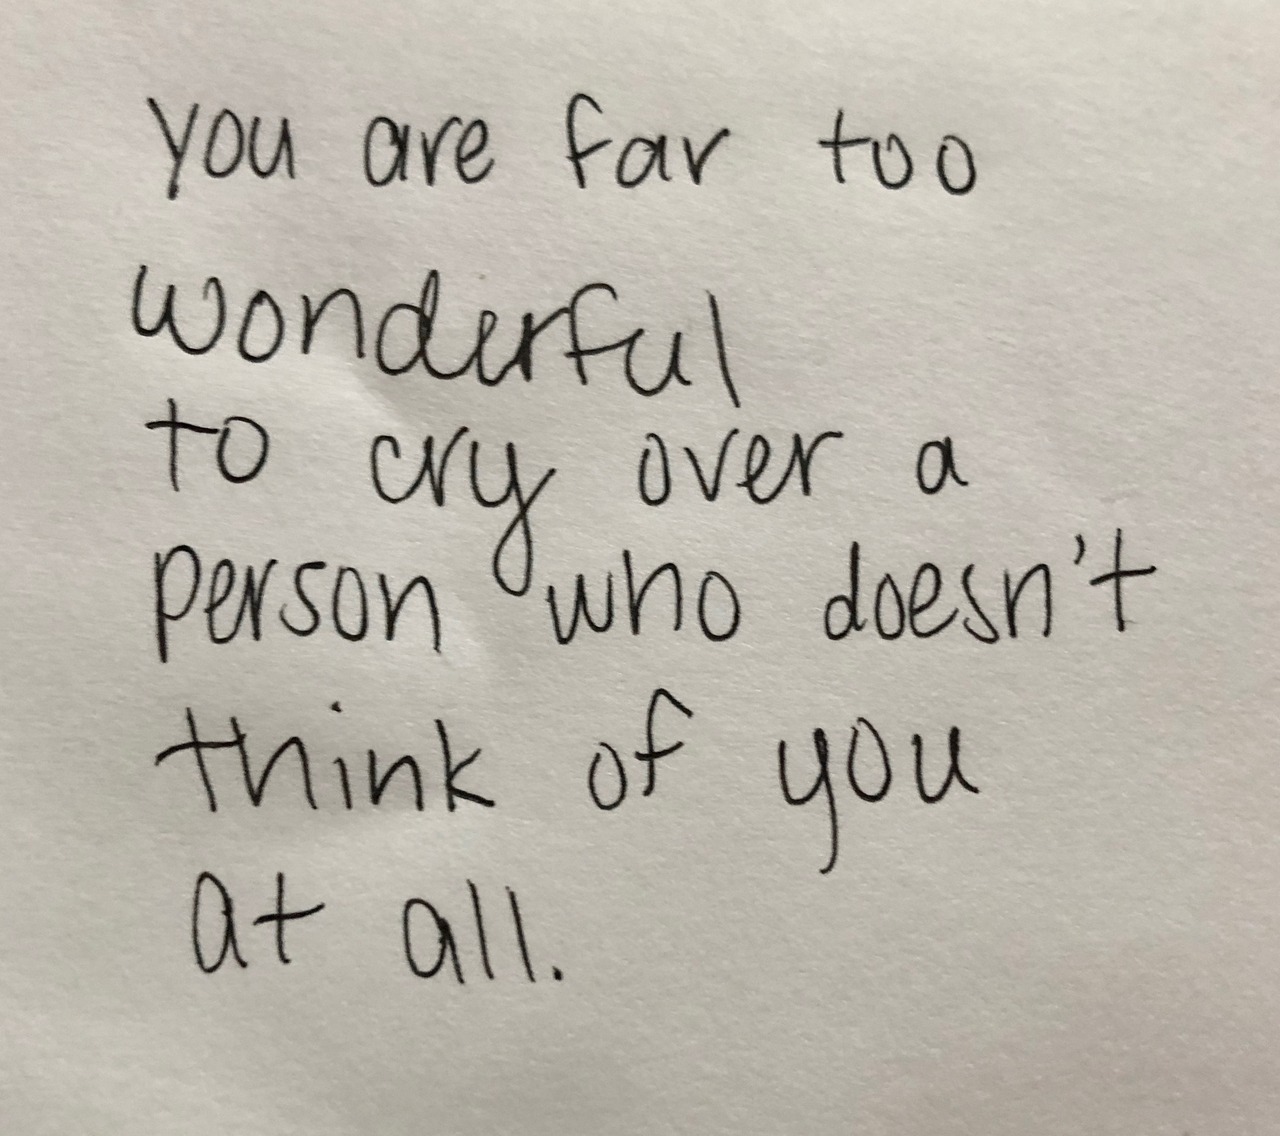 you are far too
wonderful
to cry over a
person who doesn't
think of you
at all.